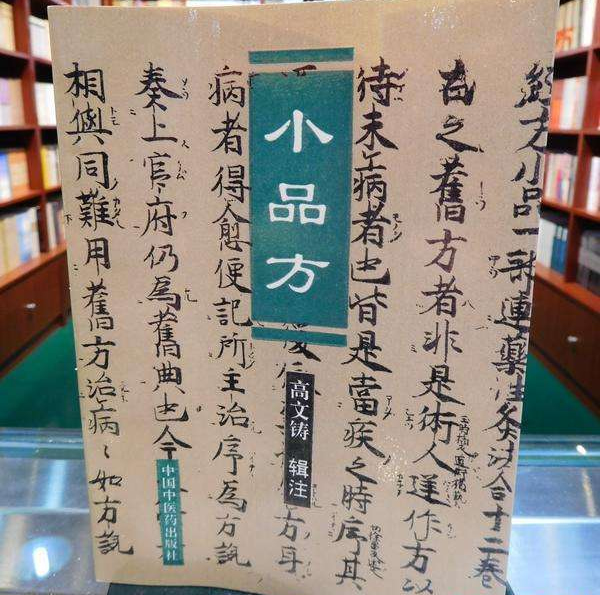 小品方
高文铸 辑注
中国中医药出版社
經方小品一部連藥性灸法合十二卷
古之舊方者非是術人逆作方以
待未病者也皆是當疾之時序其
方耳
病者得愈便記所主治序為方説
奏上官府仍為舊典也今
相與同難用舊方治病々如方説